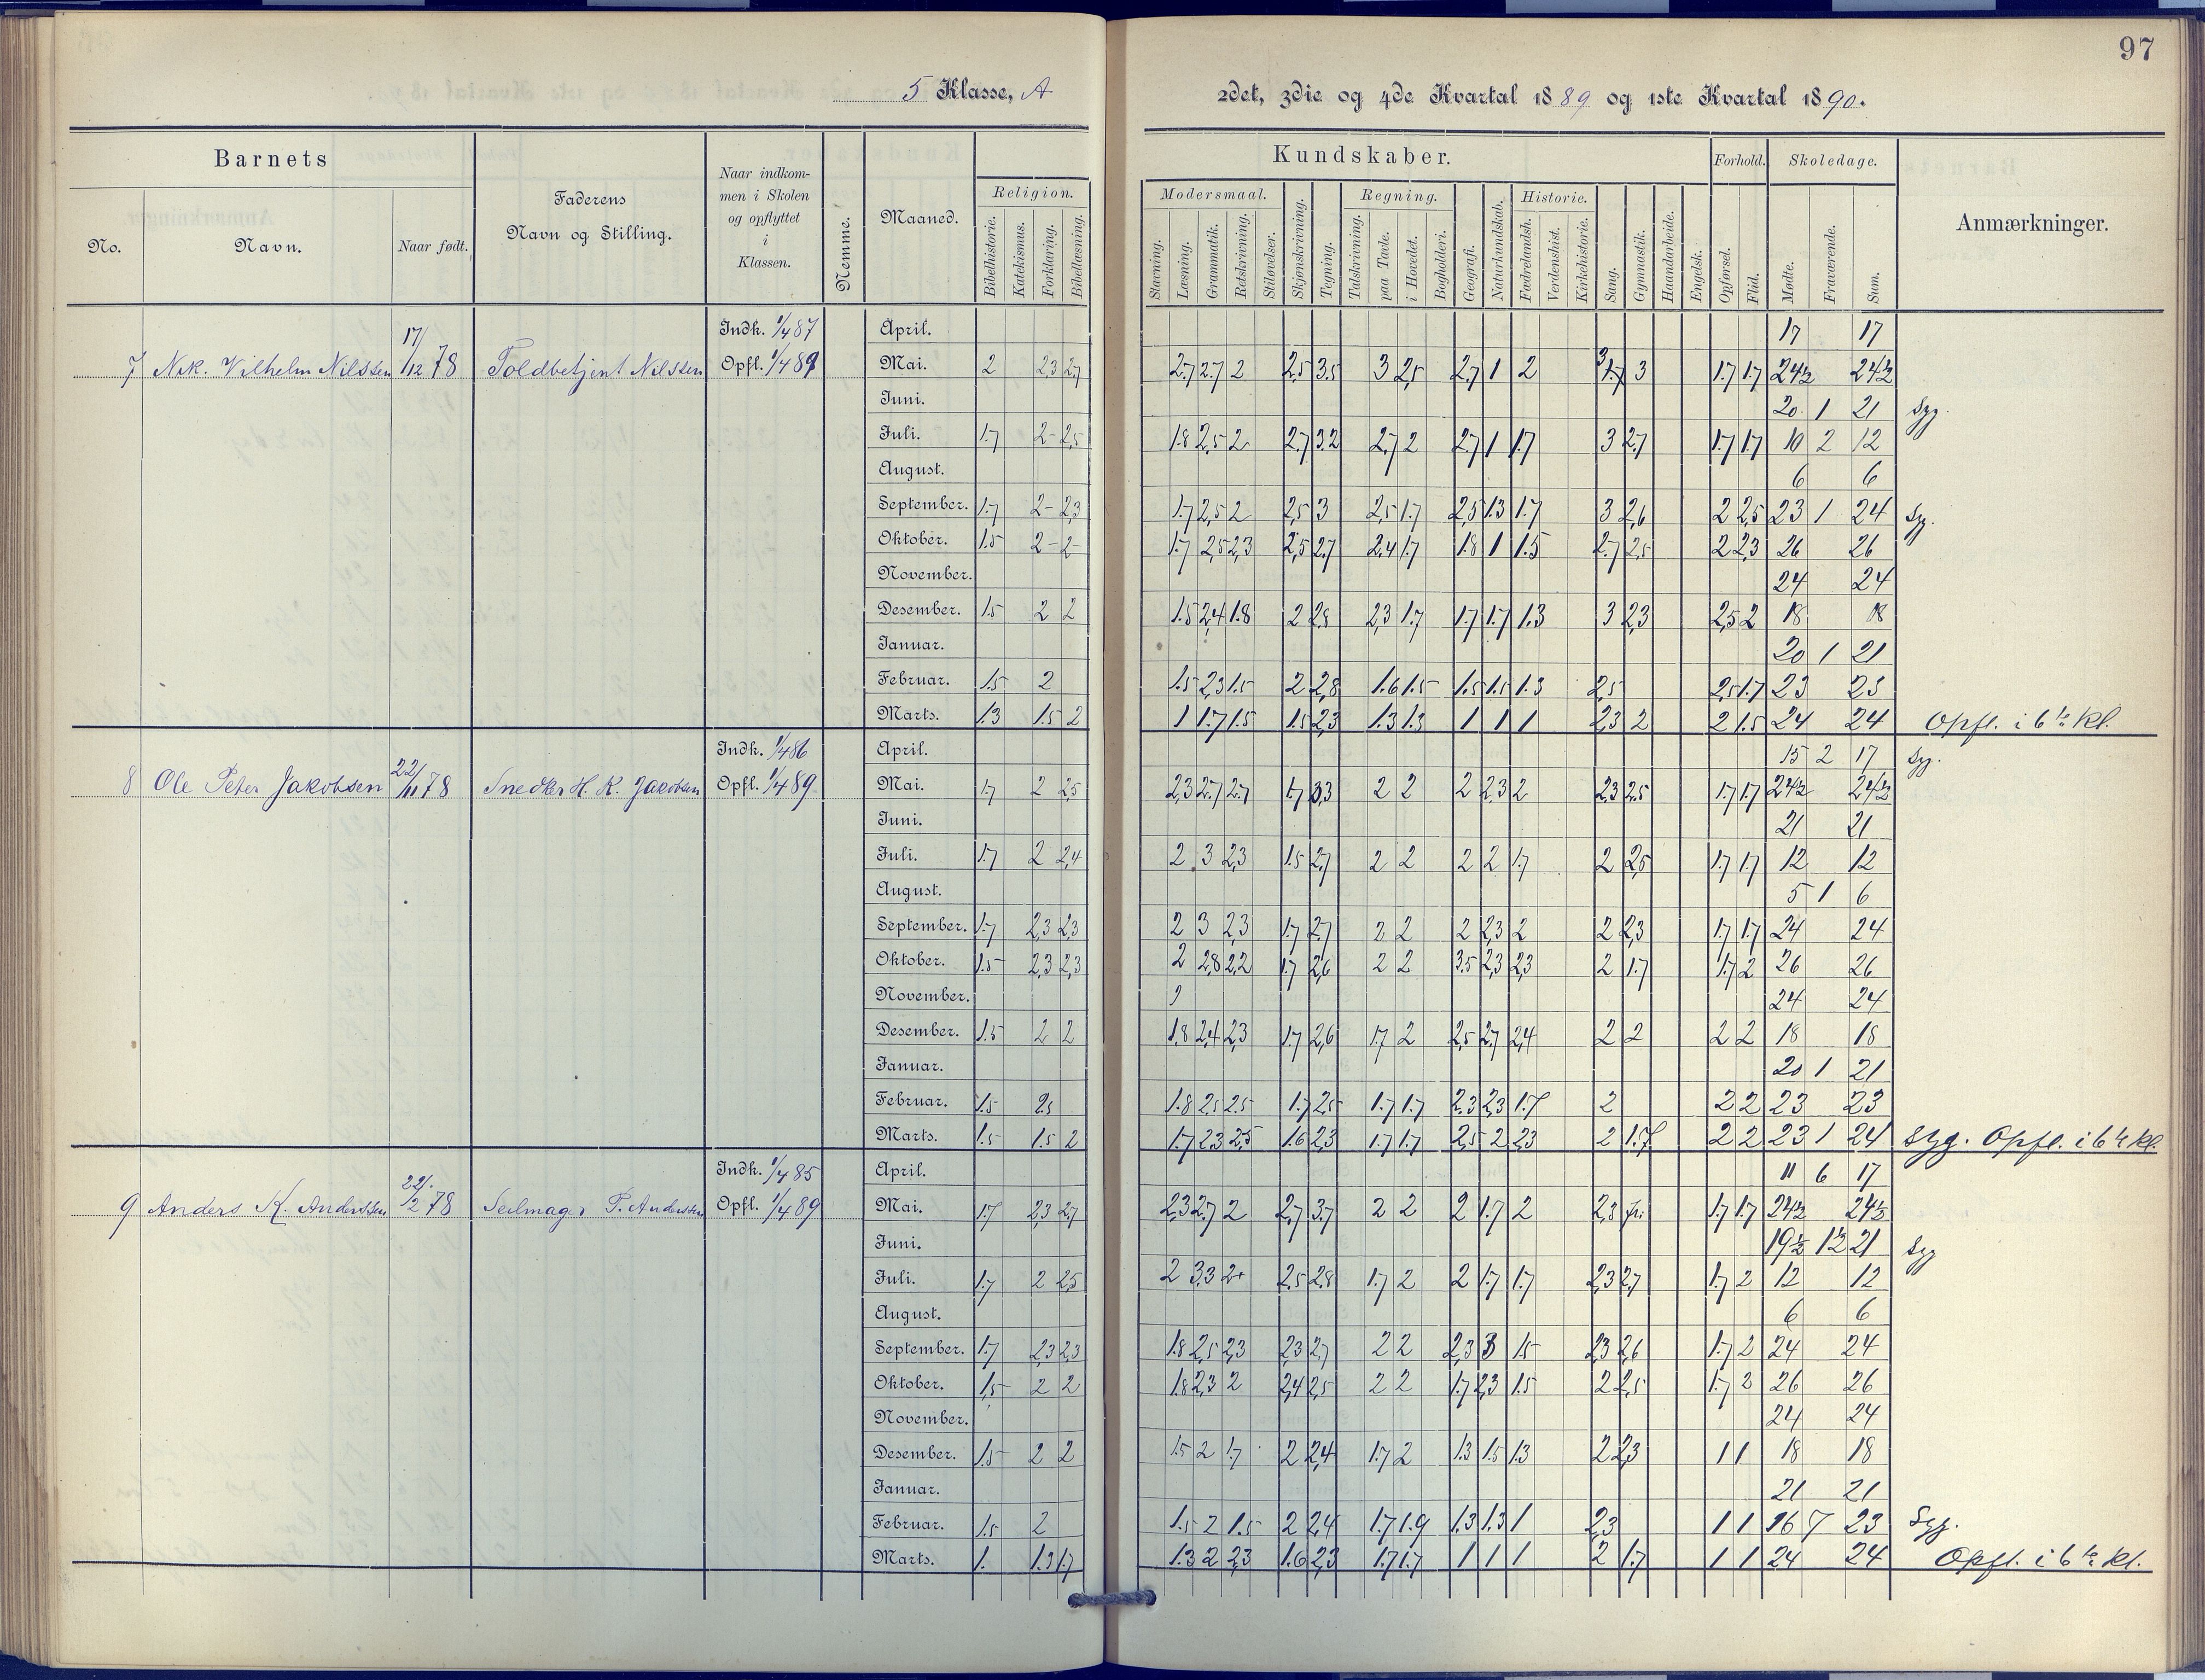 97
5 Klasse, A
2det, 3die og 4de Kvartal 1889 og 1ste Kvartal 1890.
Barnets
No.
Navn.
Naar født.
Faderens
Navn og Stilling.
Naar indkom-
men i Skolen
og opflyttet
i
Klassen.
Nemme.
Maaned.
Religion.
Bibelhistorie. Katekismus. Forklaring. Bibellæsning.
Kundskaber.
Modersmaal.
Stavning. Læsning. Grammatik. Retskrivning. Stiløvelser. Skjønskrivning. Tegning.
Regning.
Talskrivning. paa Tavle. i Hovedet. Bogholderi. Geografi. Naturkundskab.
Historie.
Fædrelandsh. Verdenshist. Kirkehistorie. Sang. Gymnastik. Haandarbeide. Engelsk.
Forhold.
Opførsel. Flid.
Skoledage.
Mødte. Fraværende. Sum.
Anmærkninger.
7 Nik. Vilhelm Nilssen 17/12 78 Toldbetjent Nilssen
Indk. 1/4 87
Opfl. 1/4 89
April. 17 17
Mai. 2 2,3 2,7 2,7 2,7 2 2,5 3,5 3 2,5 2,7 1 2 3 1,7 3 1,7 1,7 24½ 24½
Juni. 20 1 21 Syg.
Juli. 1,7 2- 2,5 1,8 2,5 2 2,7 3,2 2,7 2 2,7 1 1,7 3 2,7 1,7 1,7 10 2 12
August. 6 6
September. 1,7 2- 2,3 1,7 2,5 2 2,5 3 2,5 1,7 2,5 1.3 1.7 3 2,6 2 2,5 23 1 24 Syg.
Oktober. 1.5 2- 2- 1,7 2,5 2,3 2,5 2,7 2,4 1,7 1.8 1 1.5 2,7 2,5 2 2,3 26 26
November. 24 24
Desember. 1.5 2 2 1.5 2,4 1.8 2 2,8 2,3 1.7 1.7 1.7 1.3 3 2,3 2,5 2 18 18
Januar. 20 1 21
Februar. 1.5 2 1.5 2,3 1.5 2 2,8 1.6 1.5 1.5 1.5 1.3 2,5 2,5 1.7 23 23
Marts. 1.3 1.5 2 1 1.7 1.5 1.5 2,3 1.3 1.3 1 1 1 2,3 2 2 1.5 24 24 Opfl. i 6te Kl.
8 Ole Peter Jakobsen 22/11 78 Snedker H. K. Jacobsen
Indk. 1/4 86
Opfl. 1/4 89
April. 15 2 17 Syg.
Mai. 1,7 2 2,5 2,3 2,7 2,7 1,7 3,3 2 2 2 2,3 2 2,3 2,5 1,7 1,7 24½ 24½
Juni. 21 21
Juli. 1,7 2 2,4 2 3 2,3 1.5 2,7 2 2 2 2 1,7 2 2,5 1,7 1,7 12 12
August. 5 1 6
September. 1.7 2,3 2,3 2 3 2,3 1.7 2,7 2 2 2 2,3 2 2 2,3 1.7 1.7 24 24
Oktober. 1.5 2,3 2,3 2 2,8 2,2 1.7 2,6 2 2 3.5 2,3 2,3 2 1.7 1.7 2 26 26
November. 24 24
Desember. 1.5 2 2 1.8 2,4 2,3 1.7 2,6 1.7 2 2,5 2,7 2,4 2 2 2 2 18 18
Januar. 20 1 21
Februar. 1.5 2,5 1.8 2,5 2.5 1.7 2,5 1.7 1.7 2.3 2,3 1.7 2 2 2 23 23
Marts. 1.5 1.5 2 1.7 2.3 2.5 1.6 2.3 1.7 1.7 2.5 2 2.3 2 1.7 2 2 23 1 24 Syg. Opfl. i 6te Kl.
9 Anders K. Anderssen 22/2 78 Seilmager P. Anderssen
Indk. 1/4 85
Opfl. 1/4 89
April. 11 6 17
Mai. 1,7 2,3 2,7 2,3 2,7 2 2,7 3,7 2 2 2 1.7 2 2,3 fri 1,7 1,7 24½ 24½
Juni. 19½ 1½ 21 Syg
Juli. 1.7 2 2,5 2 3,3 2+ 2,5 2,8 1.7 2 2 1.7 1.7 2,3 2,7 1.7 2 12 12
August. 6 6
September. 1.7 2,3 2,3 1.8 2,5 2,3 2,3 2,7 2 2 2,3 3 1.5 2,3 2,6 1.7 2 24 24
Oktober. 1,5 2 2 1.8 2,3 2 2,4 2,5 2 2 1.7 2,3 1.5 2 2,5 1.7 2 26 26
November. 24 24
Desember. 1.5 2 2 1.5 2 1.7 2 2,4 1.7 2 1.3 1.5 1.3 2 2,3 1 1 18 18
Januar. 21 21
Februar. 1.5 2 1.5 2 1.5 2 2,4 1.7 1.9 1.3 1.3 1 2,3 1 1 16 7 23 Syg.
Marts. 1. 1.3 1.7 1.3 2 2,3 1.6 2,3 1.7 1.7 1 1 1 2 1.7 1 1 24 24 Opfl. i 6te Kl.